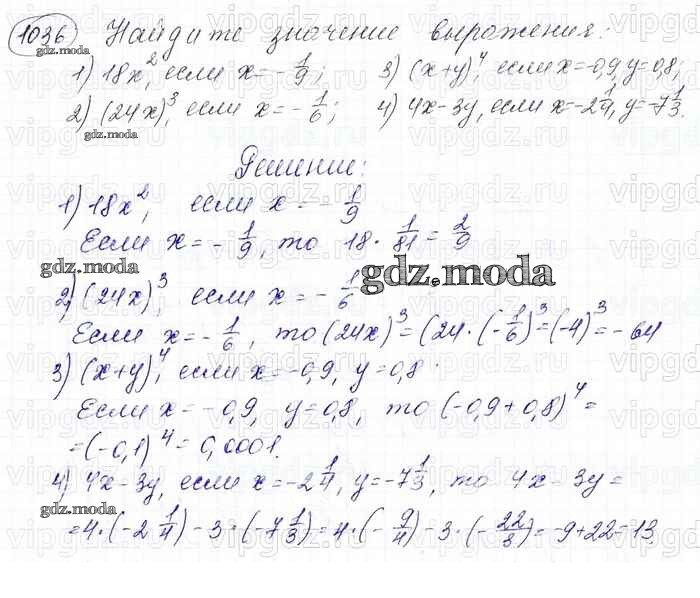 1036 Найдите значение выражения:
1) 18x², если x = -1/9; 3) (x+y)⁴, если x=-0,9, y=0,8;
2) (24x)³, если x = -1/6; 4) 4x-3y, если x=-2 1/4, y=-7 1/3.
gdz.moda
gdz.moda
Решение:
1) 18x², если x = -1/9
Если x = -1/9, то 18 · 1/81 = 2/9
gdz.moda
gdz.moda
2) (24x)³, если x = -1/6
Если x = -1/6, то (24x)³ = (24 · (-1/6)³ = (-4)³ = -64
3) (x+y)⁴, если x=-0,9, y=0,8.
Если x = -0,9, y=0,8, то (-0,9+0,8)⁴ =
= (-0,1)⁴ = 0,0001.
4) 4x-3y, если x=-2 1/4, y=-7 1/3, то 4x-3y =
gdz.moda
= 4 · (-2 1/4) - 3 · (-7 1/3) = 4 · (-9/4) - 3 · (-22/3) = -9+22=13